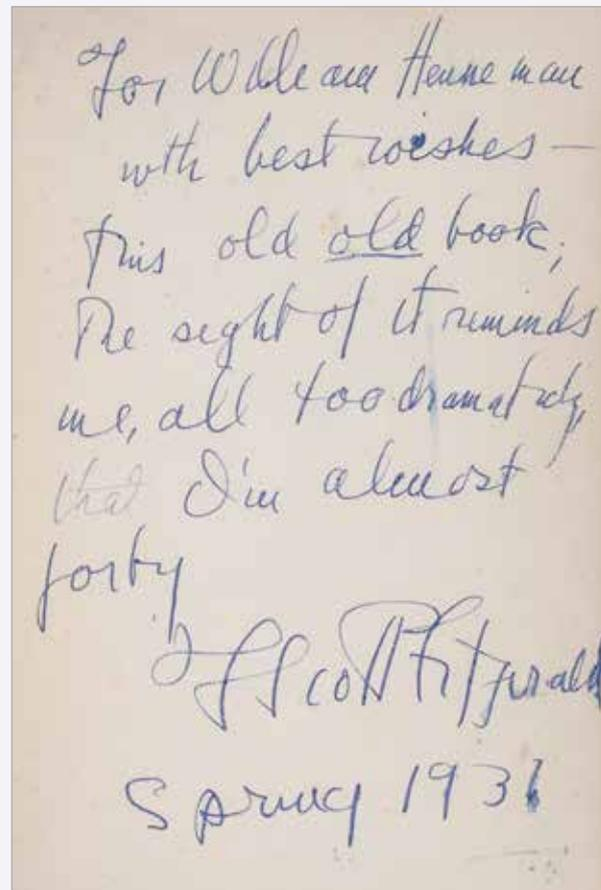 For William Henneman
with best wishes —
this old old book;
The sight of it reminds
me, all too dramaticly,
that I'm almost
forty
F Scott Fitzgerald
Spring 1931